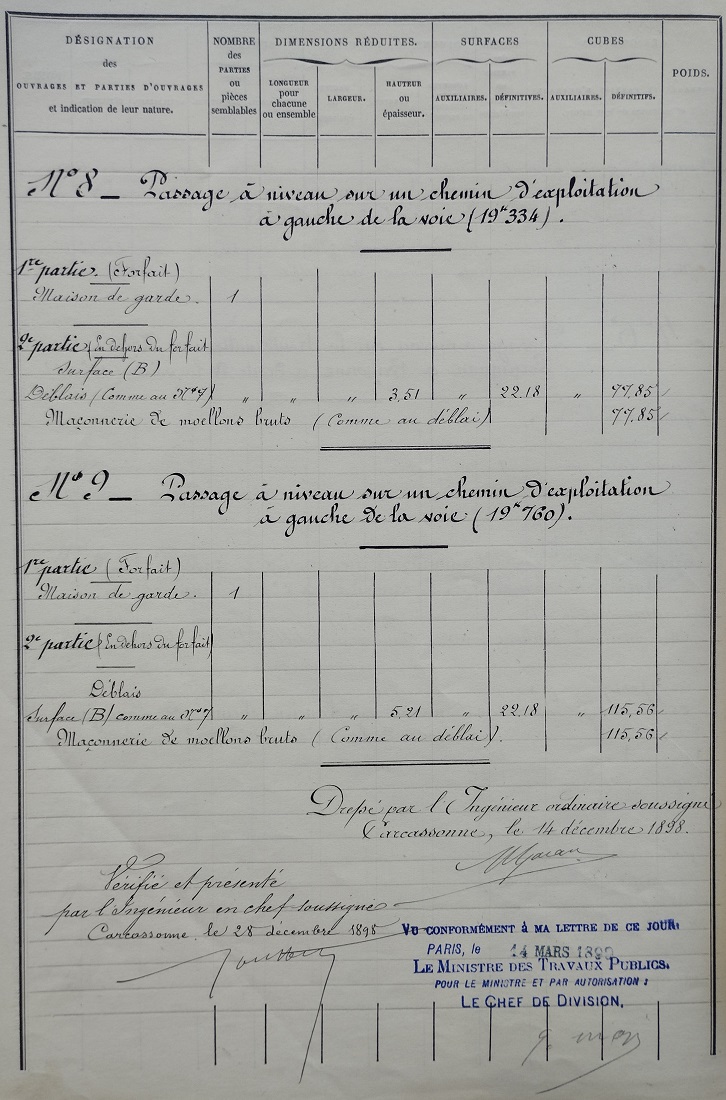 DÉSIGNATION
des
OUVRAGES ET PARTIES D'OUVRAGES
et indication de leur nature.
NOMBRE
des
PARTIES
ou
pièces
semblables
DIMENSIONS RÉDUITES.
LONGUEUR
pour
chacune
ou ensemble
LARGEUR.
HAUTEUR
ou
épaisseur.
SURFACES
AUXILIAIRES.
DÉFINITIVES.
CUBES
AUXILIAIRES.
DÉFINITIFS.
POIDS.
N° 8 _ Passage à niveau sur un chemin d'exploitation
à gauche de la voie (19k334).
1re partie. (Forfait)
Maison de garde. 1
2e partie (En dehors du forfait
Surface (B)
Déblais (Comme au N° 7) " " " 3,51 " 22.18 " 77,85
Maçonnerie de moellons bruts (Comme au déblai) 77.85
N° 9 _ Passage à niveau sur un chemin d'exploitation
à gauche de la voie (19k760).
1re partie (Forfait)
Maison de garde. 1
2e partie (En dehors du forfait)
Déblais
Surface (B) comme au N° 7 " " " 5,21 " 22.18 " 115,56
Maçonnerie de moellons bruts (Comme au déblai). 115,56
Dressé par l'Ingénieur ordinaire soussigné
Carcassonne, le 14 décembre 1898.
Vérifié et présenté
par l'Ingénieur en chef soussigné
Carcassonne, le 28 décembre 1898
VU CONFORMÉMENT à MA LETTRE DE CE JOUR.
PARIS, le 14 MARS 1899
LE MINISTRE DES TRAVAUX PUBLICS.
POUR LE MINISTRE ET PAR AUTORISATION :
LE CHEF DE DIVISION,